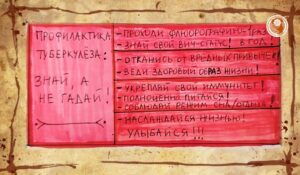 ПРОФИЛАКТИКА
ТУБЕРКУЛЁЗА:
ЗНАЙ, А
НЕ ГАДАЙ!
- ПРОХОДИ ФЛЮОРОГРАФИЮ 1 РАЗ
- ЗНАЙ СВОЙ ВИЧ-СТАТУС! В ГОД!
- ОТКАЖИСЬ ОТ ВРЕДНЫХ ПРИВЫЧЕК!
- ВЕДИ ЗДОРОВЫЙ ОБРАЗ ЖИЗНИ!
- УКРЕПЛЯЙ СВОЙ ИММУНИТЕТ!
- ПОЛНОЦЕННО ПИТАЙСЯ!
- СОБЛЮДАЙ РЕЖИМ СНА/ОТДЫХА!
- НАСЛАЖДАЙСЯ ЖИЗНЬЮ!
УЛЫБАЙСЯ!!!